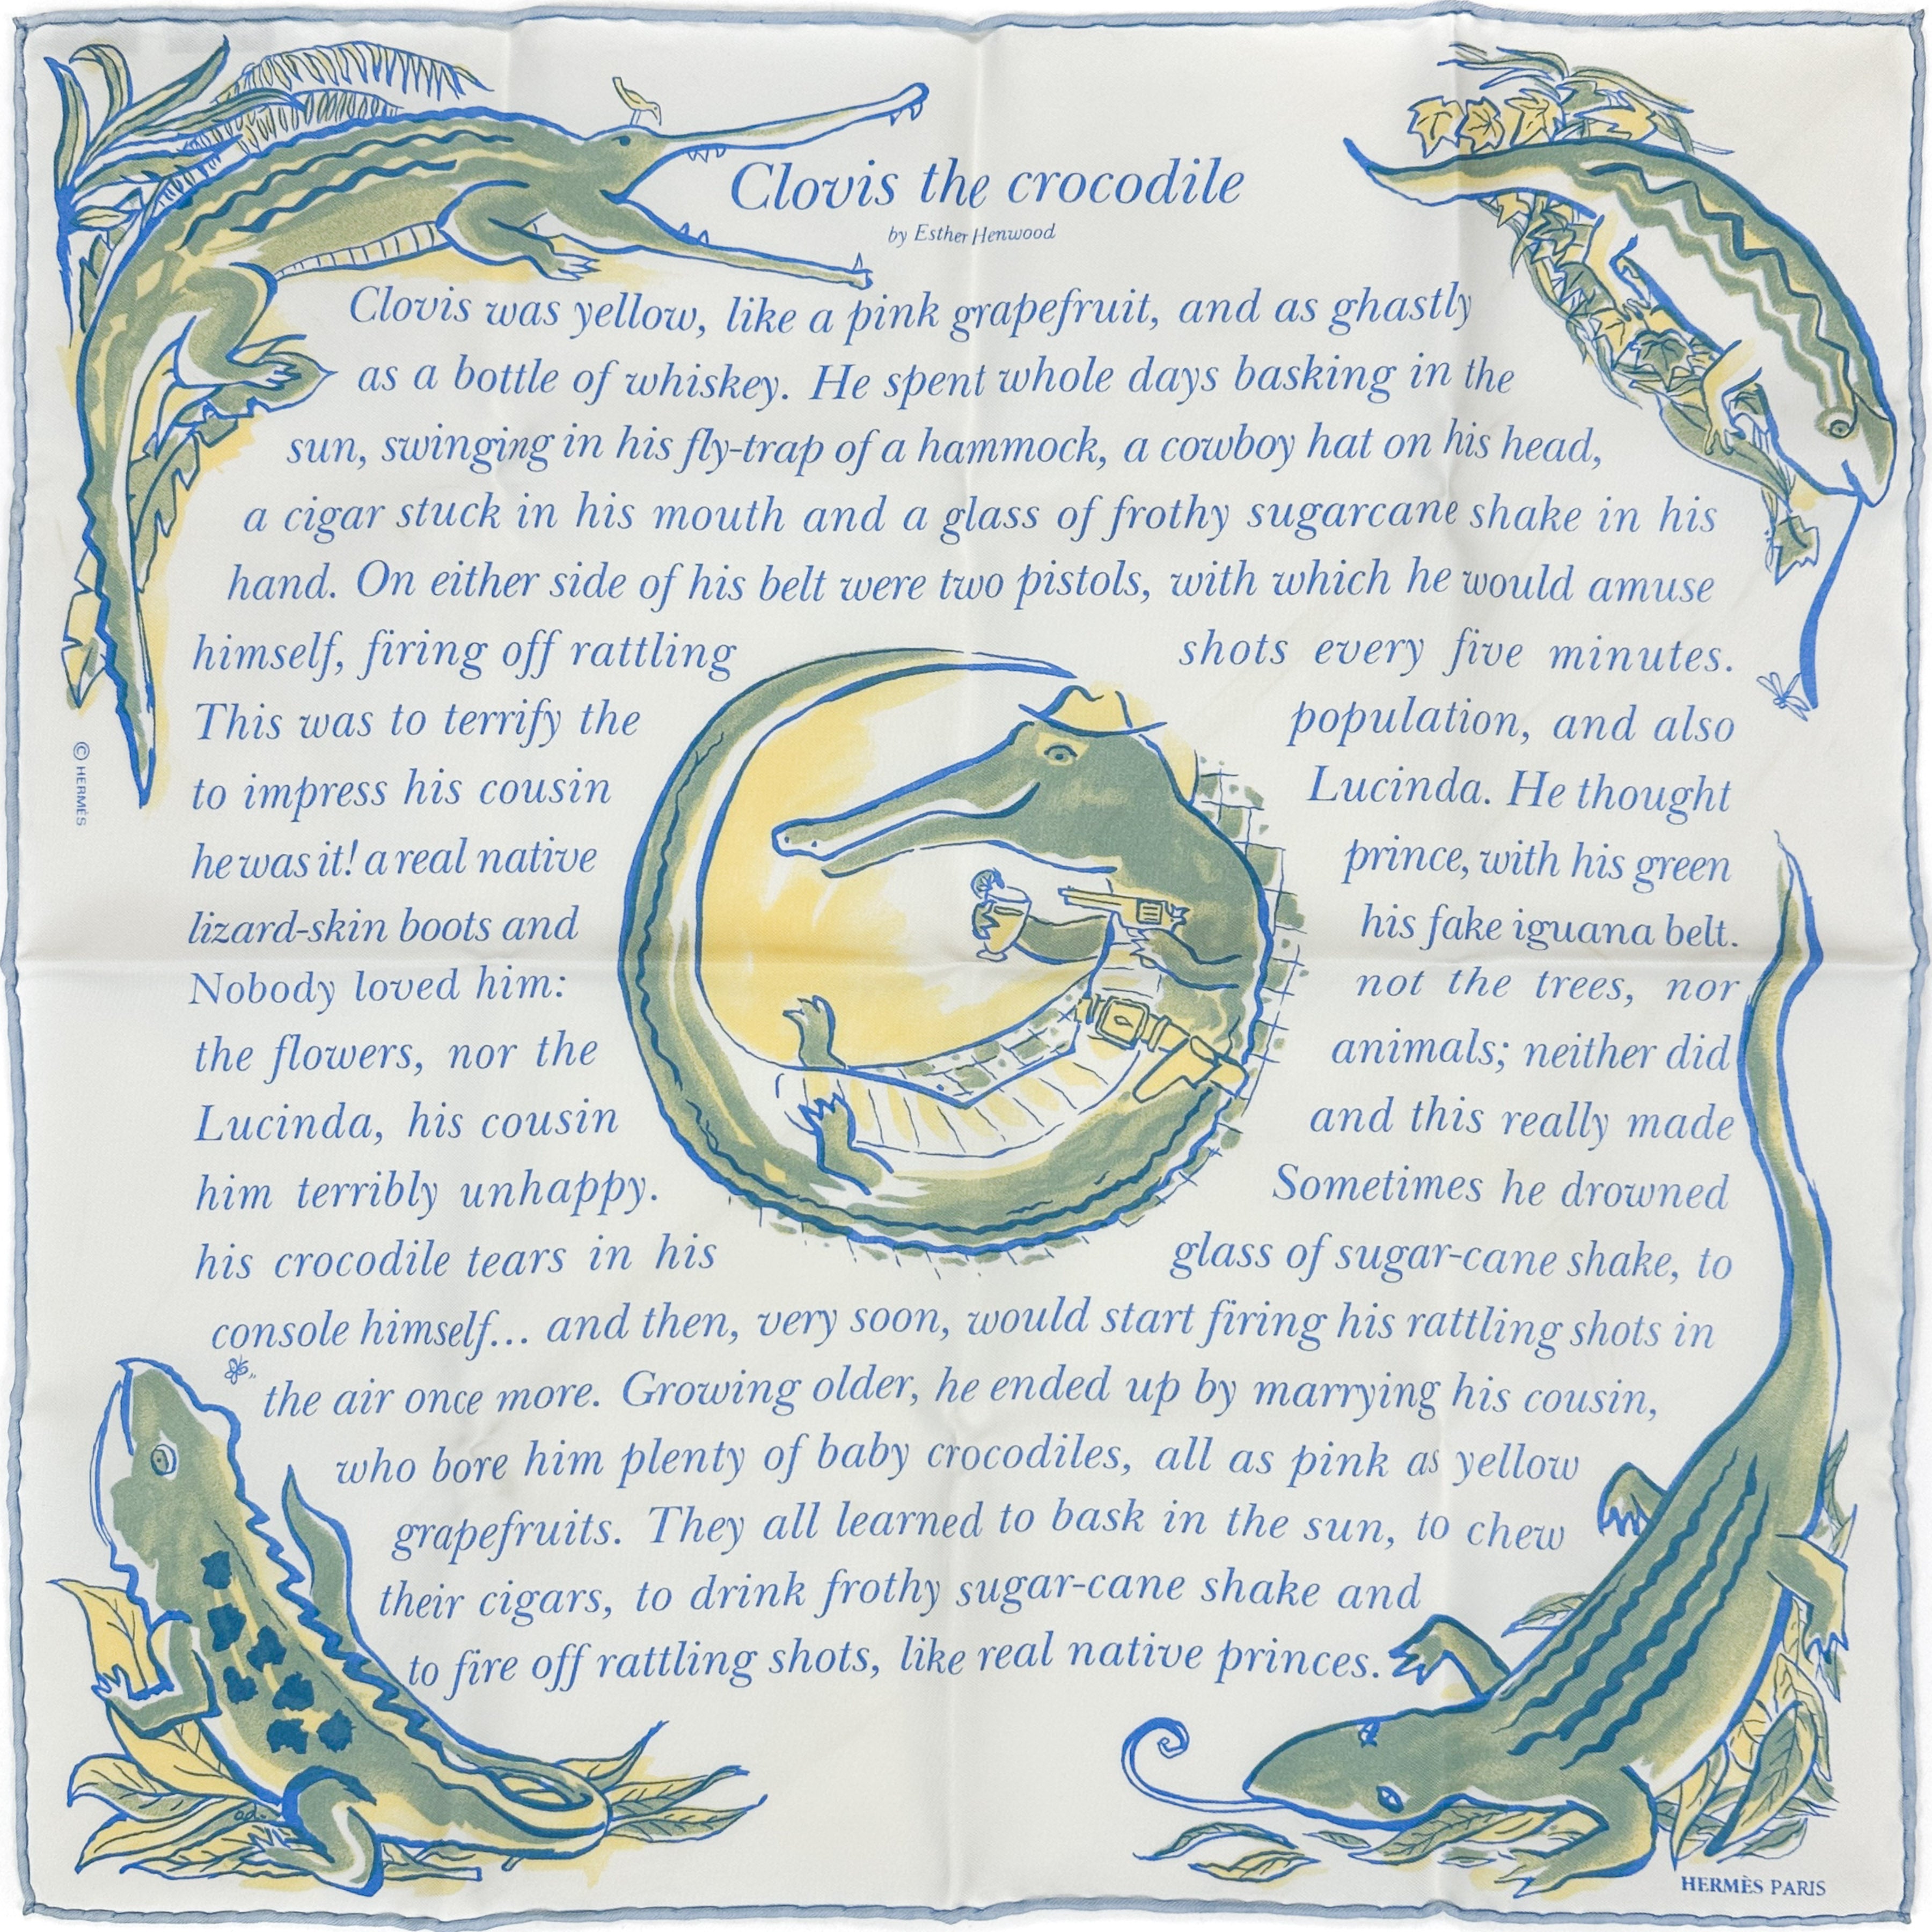 Clovis the crocodile
by Esther Henwood
Clovis was yellow, like a pink grapefruit, and as ghastly
as a bottle of whiskey. He spent whole days basking in the
sun, swinging in his fly-trap of a hammock, a cowboy hat on his head,
a cigar stuck in his mouth and a glass of frothy sugarcane shake in his
hand. On either side of his belt were two pistols, with which he would amuse
himself, firing off rattling shots every five minutes.
This was to terrify the population, and also
to impress his cousin Lucinda. He thought
he was it! a real native prince, with his green
lizard-skin boots and his fake iguana belt.
Nobody loved him: not the trees, nor
the flowers, nor the animals; neither did
Lucinda, his cousin and this really made
him terribly unhappy. Sometimes he drowned
his crocodile tears in his glass of sugar-cane shake, to
console himself... and then, very soon, would start firing his rattling shots in
the air once more. Growing older, he ended up by marrying his cousin,
who bore him plenty of baby crocodiles, all as pink as yellow
grapefruits. They all learned to bask in the sun, to chew
their cigars, to drink frothy sugar-cane shake and
to fire off rattling shots, like real native princes.
© HERMÈS
HERMÈS PARIS